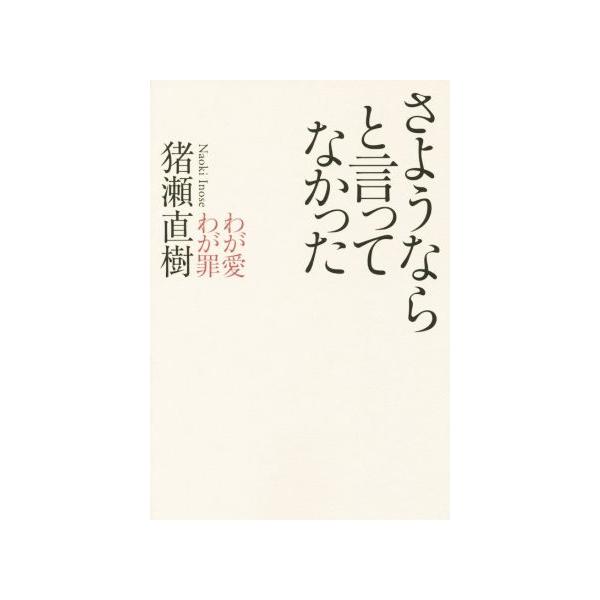 さようなら
と言って
なかった
わが愛
わが罪
Naoki Inose
猪瀬直樹